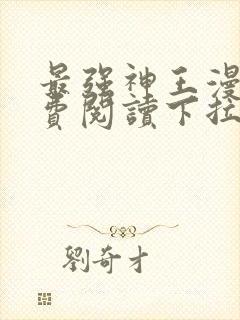 最強神王漫
費閱讀下拉
劉奇才